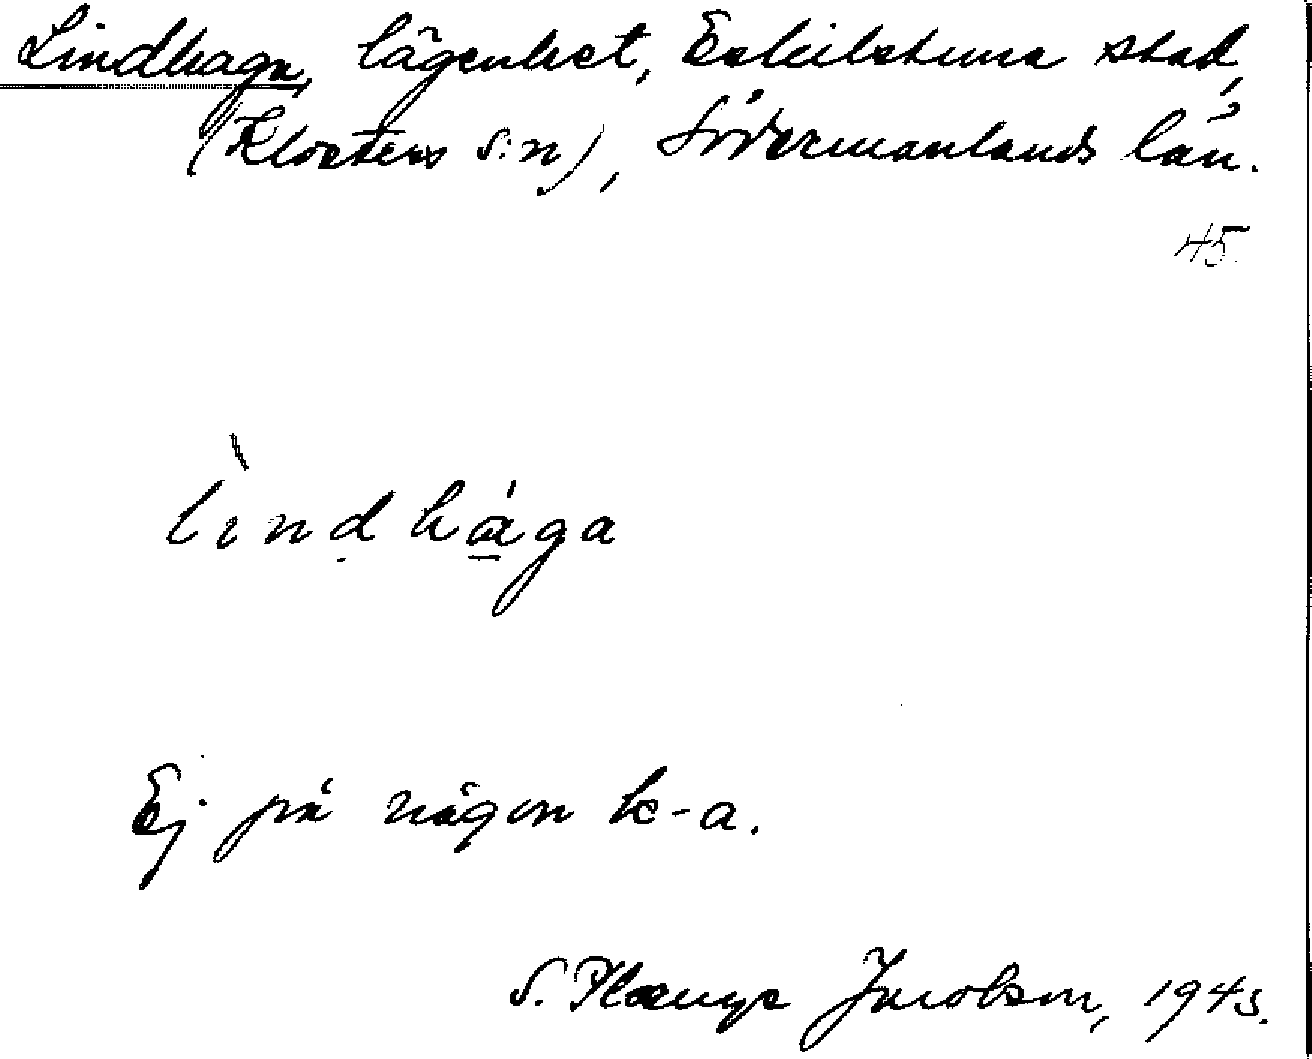 Lindhaga, lägenhet, Eskilstuna stad,
(Klosters s:n), Södermanlands län.
45.
lìndhága
Ej på någon k-a.
S. Jacobson, 1945.